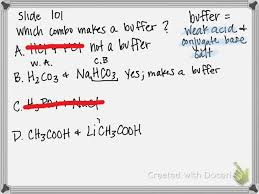 Slide 101
Which combo makes a buffer?
buffer =
weak acid &
conjugate base
salt
A. HCl + FCl not a buffer
W.A. C.B
B. H₂CO₃ & NaHCO₃ Yes, makes a buffer
C. H₃PO₄ + NaCl
D. CH₃COOH + LiCH₃COOH
Created with Doceri